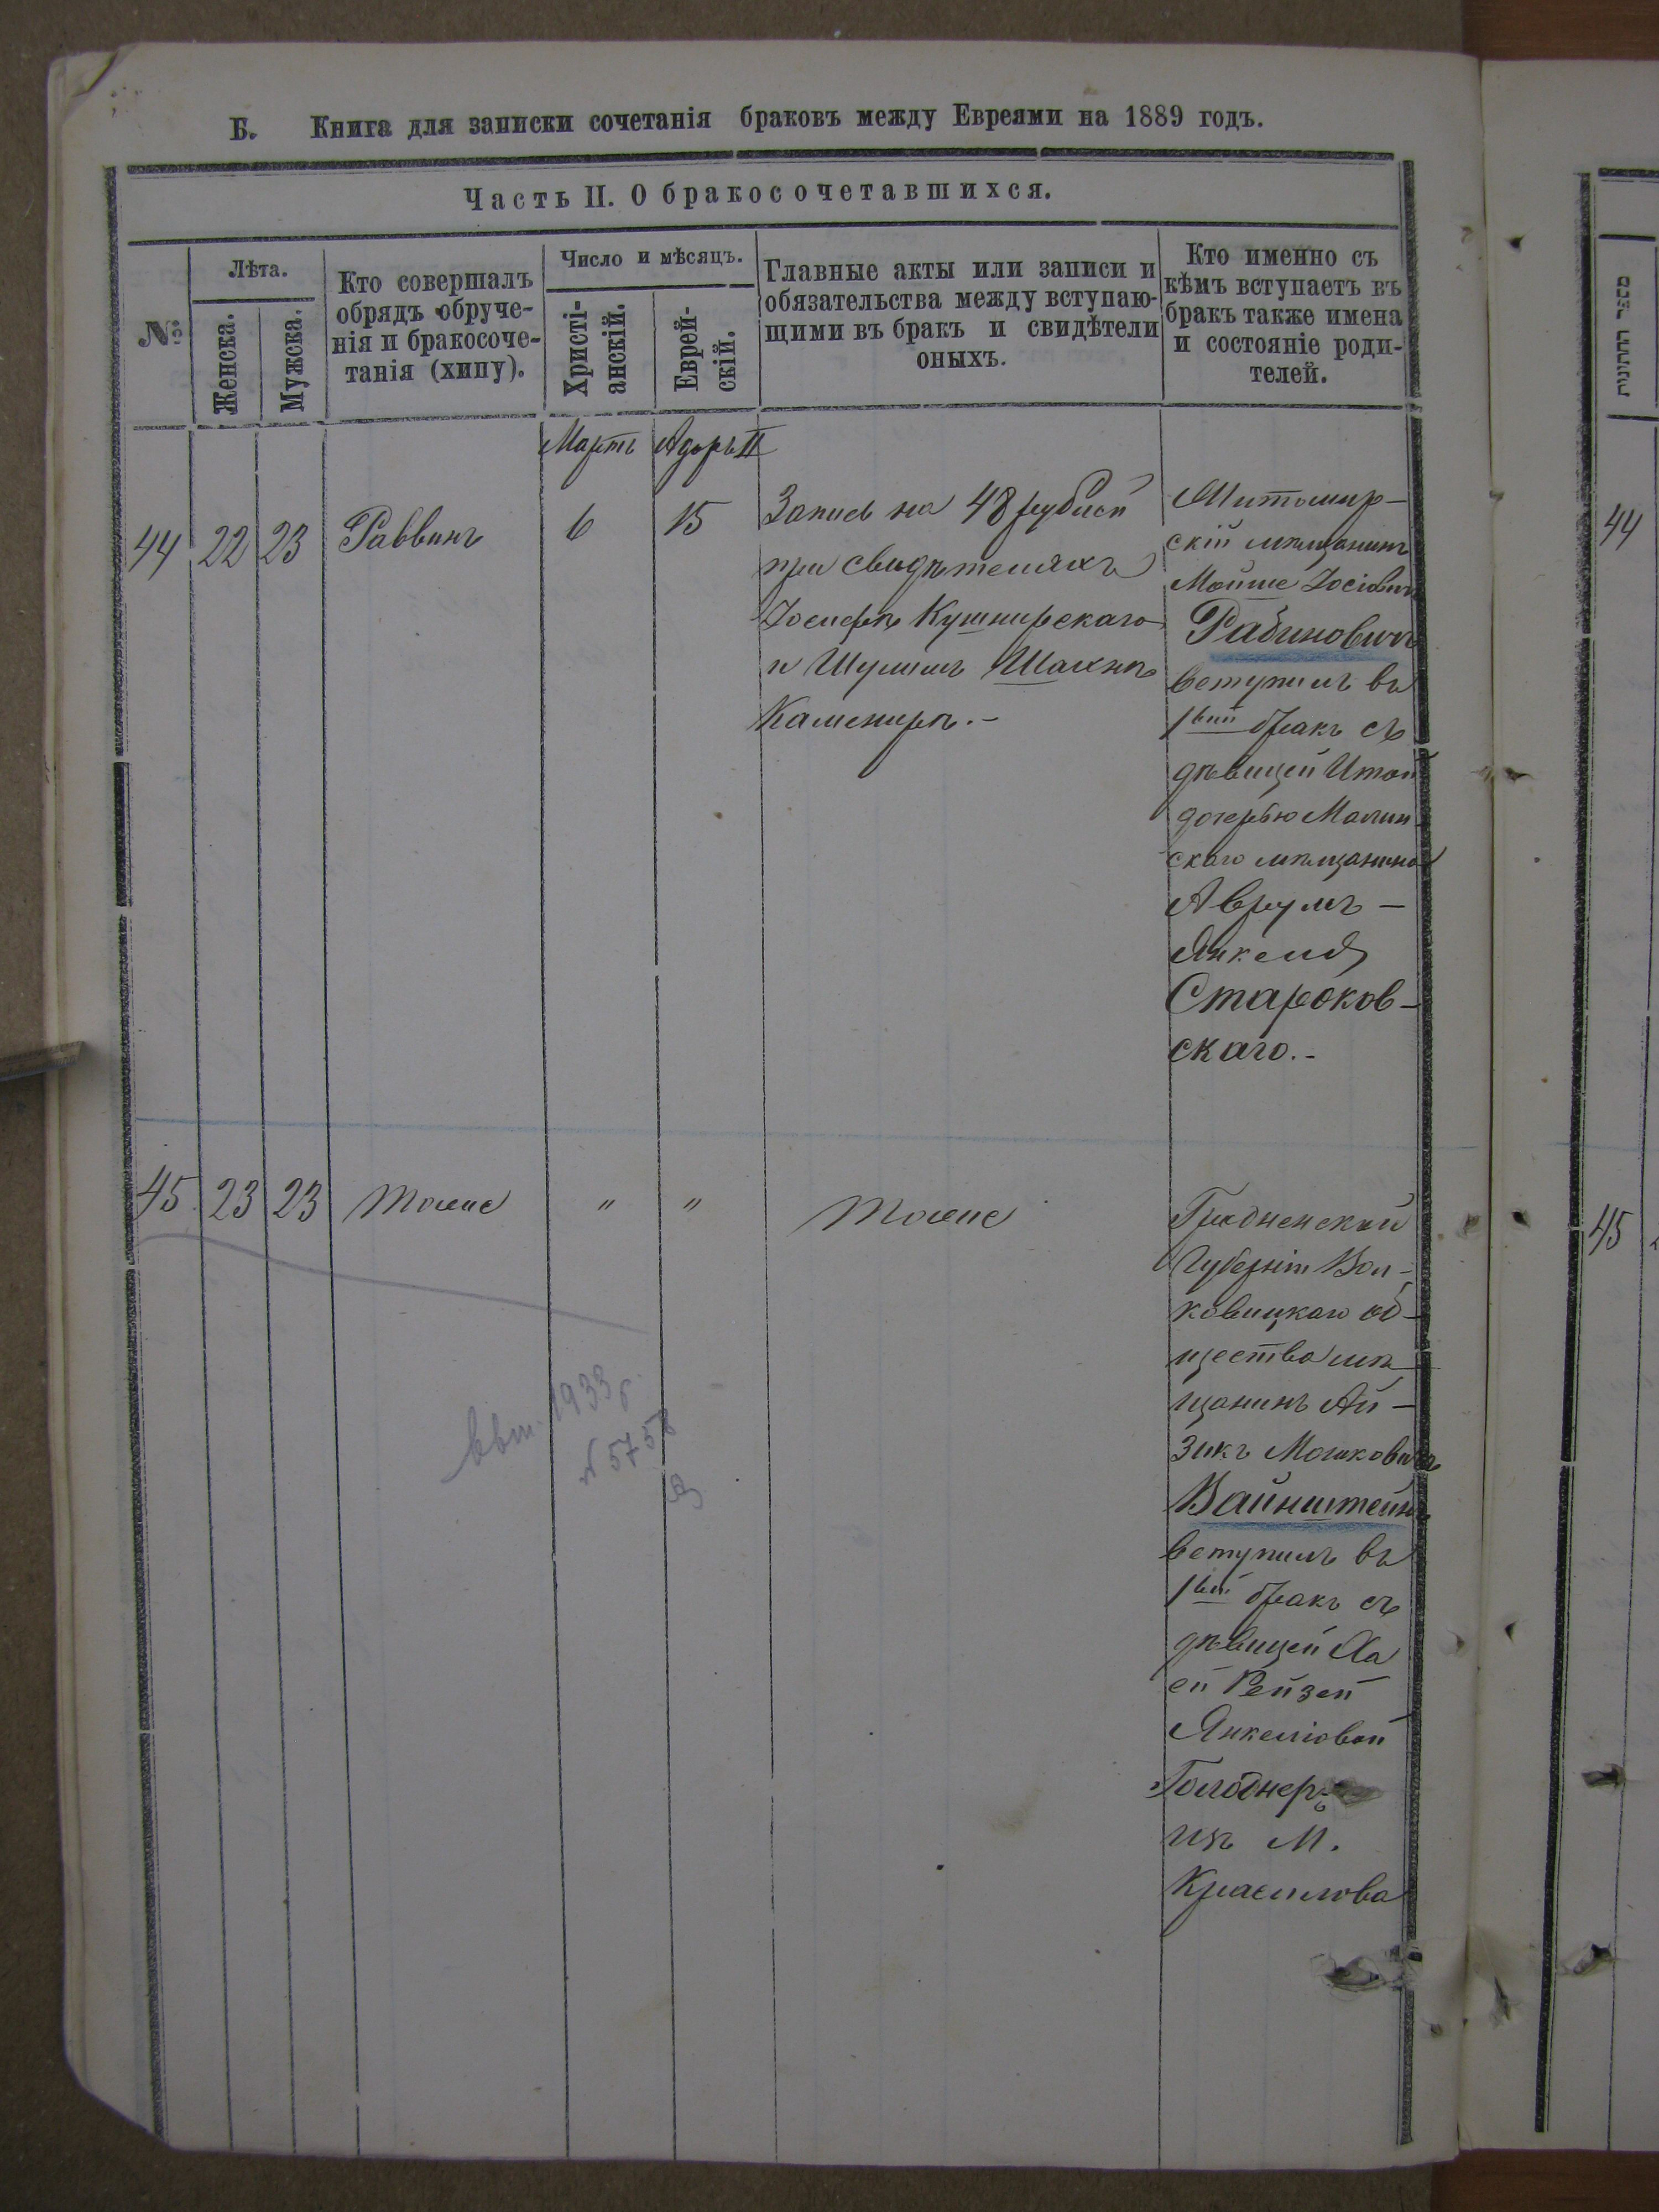 Б. Книга для записки сочетанія браковъ между Евреями на 1889 годъ.
Часть II. О бракосочетавшихся.
№
Лѣта.
Женска.
Мужска.
Кто совершалъ
обрядъ обруче-
нія и бракосоче-
танія (хипу).
Число и мѣсяцъ.
Христі-
анскій.
Еврей-
скій.
Главные акты или записи и
обязательства между вступаю-
щими въ бракъ и свидѣтели
оныхъ.
Кто именно съ
кѣмъ вступаетъ въ
бракъ также имена
и состояніе роди-
телей.
Мартъ Адоръ II
44 22 23 Раввинъ 6 15
Запись на 48 рублей
при свидѣтеляхъ
Іосифѣ Кушнирскаго
и Шулимъ Шахнѣ
Каменирѣ.-
Житомир-
скій мѣщанинъ
Мойше Іосіовичъ
Рабиновичъ
вступилъ въ
1вый бракъ съ
дѣвицей Итой
дочерью Малин-
скаго мѣщанина
Аврумъ-
Янкеля
Староков-
скаго.-
45 23 23 Тоже " " Тоже
Гродненской
Губерніи Вол-
ковицкаго об-
щества мѣ-
щанинъ Ай-
зикъ Мошковичъ
Вайнштейнъ
вступилъ въ
1вый бракъ съ
дѣвицей Ха
ей Рейзей
Янкеліовой
Голоднеръ
изъ М.
Красилова
1933 г.
№ 5758
44
45